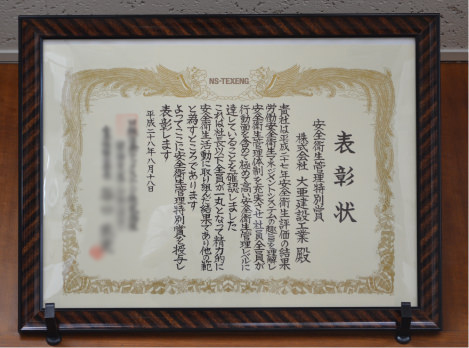 NS-TEXENG
表彰状
安全衛生管理特別賞
株式会社 大亜建設工業 殿
貴社は平成二十七年安全衛生評価の結果
労働安全衛生マネジメントシステムの趣旨を理解し
安全衛生管理体制を充実させ社員全員が
行動面を含めて極めて高い安全衛生管理レベルに
達していることを確認しました
これは社長以下全員が一丸となって精力的に
安全衛生活動に取り組んだ結果であり他の範
と為すところであります
よってここに安全衛生管理特別賞を授与し
表彰します
平成二十八年八月十八日